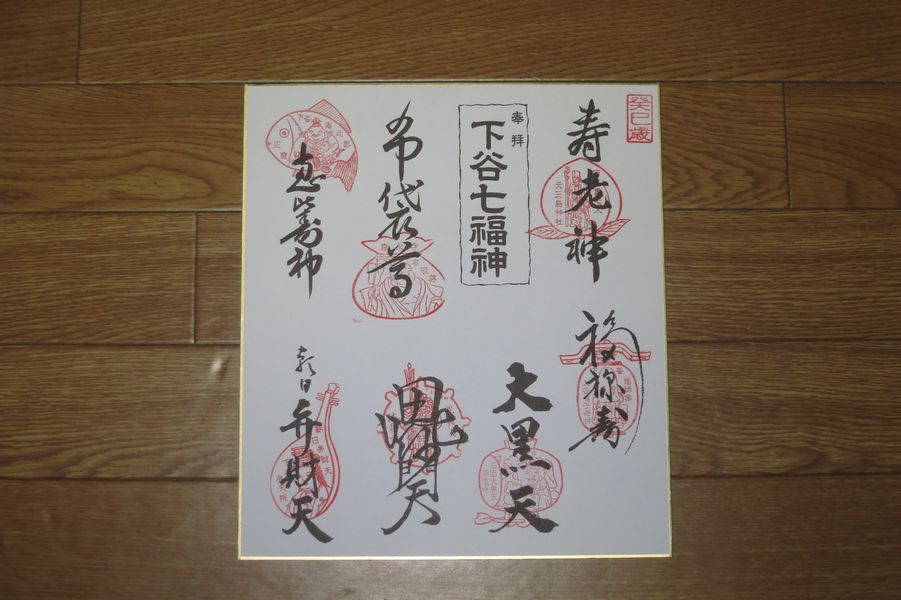 癸巳歳
寿老神
元三島神社
福禄寿
奉拝
下谷七福神
大黒天
布袋尊
毘沙門天
恵比寿神
朝日弁財天